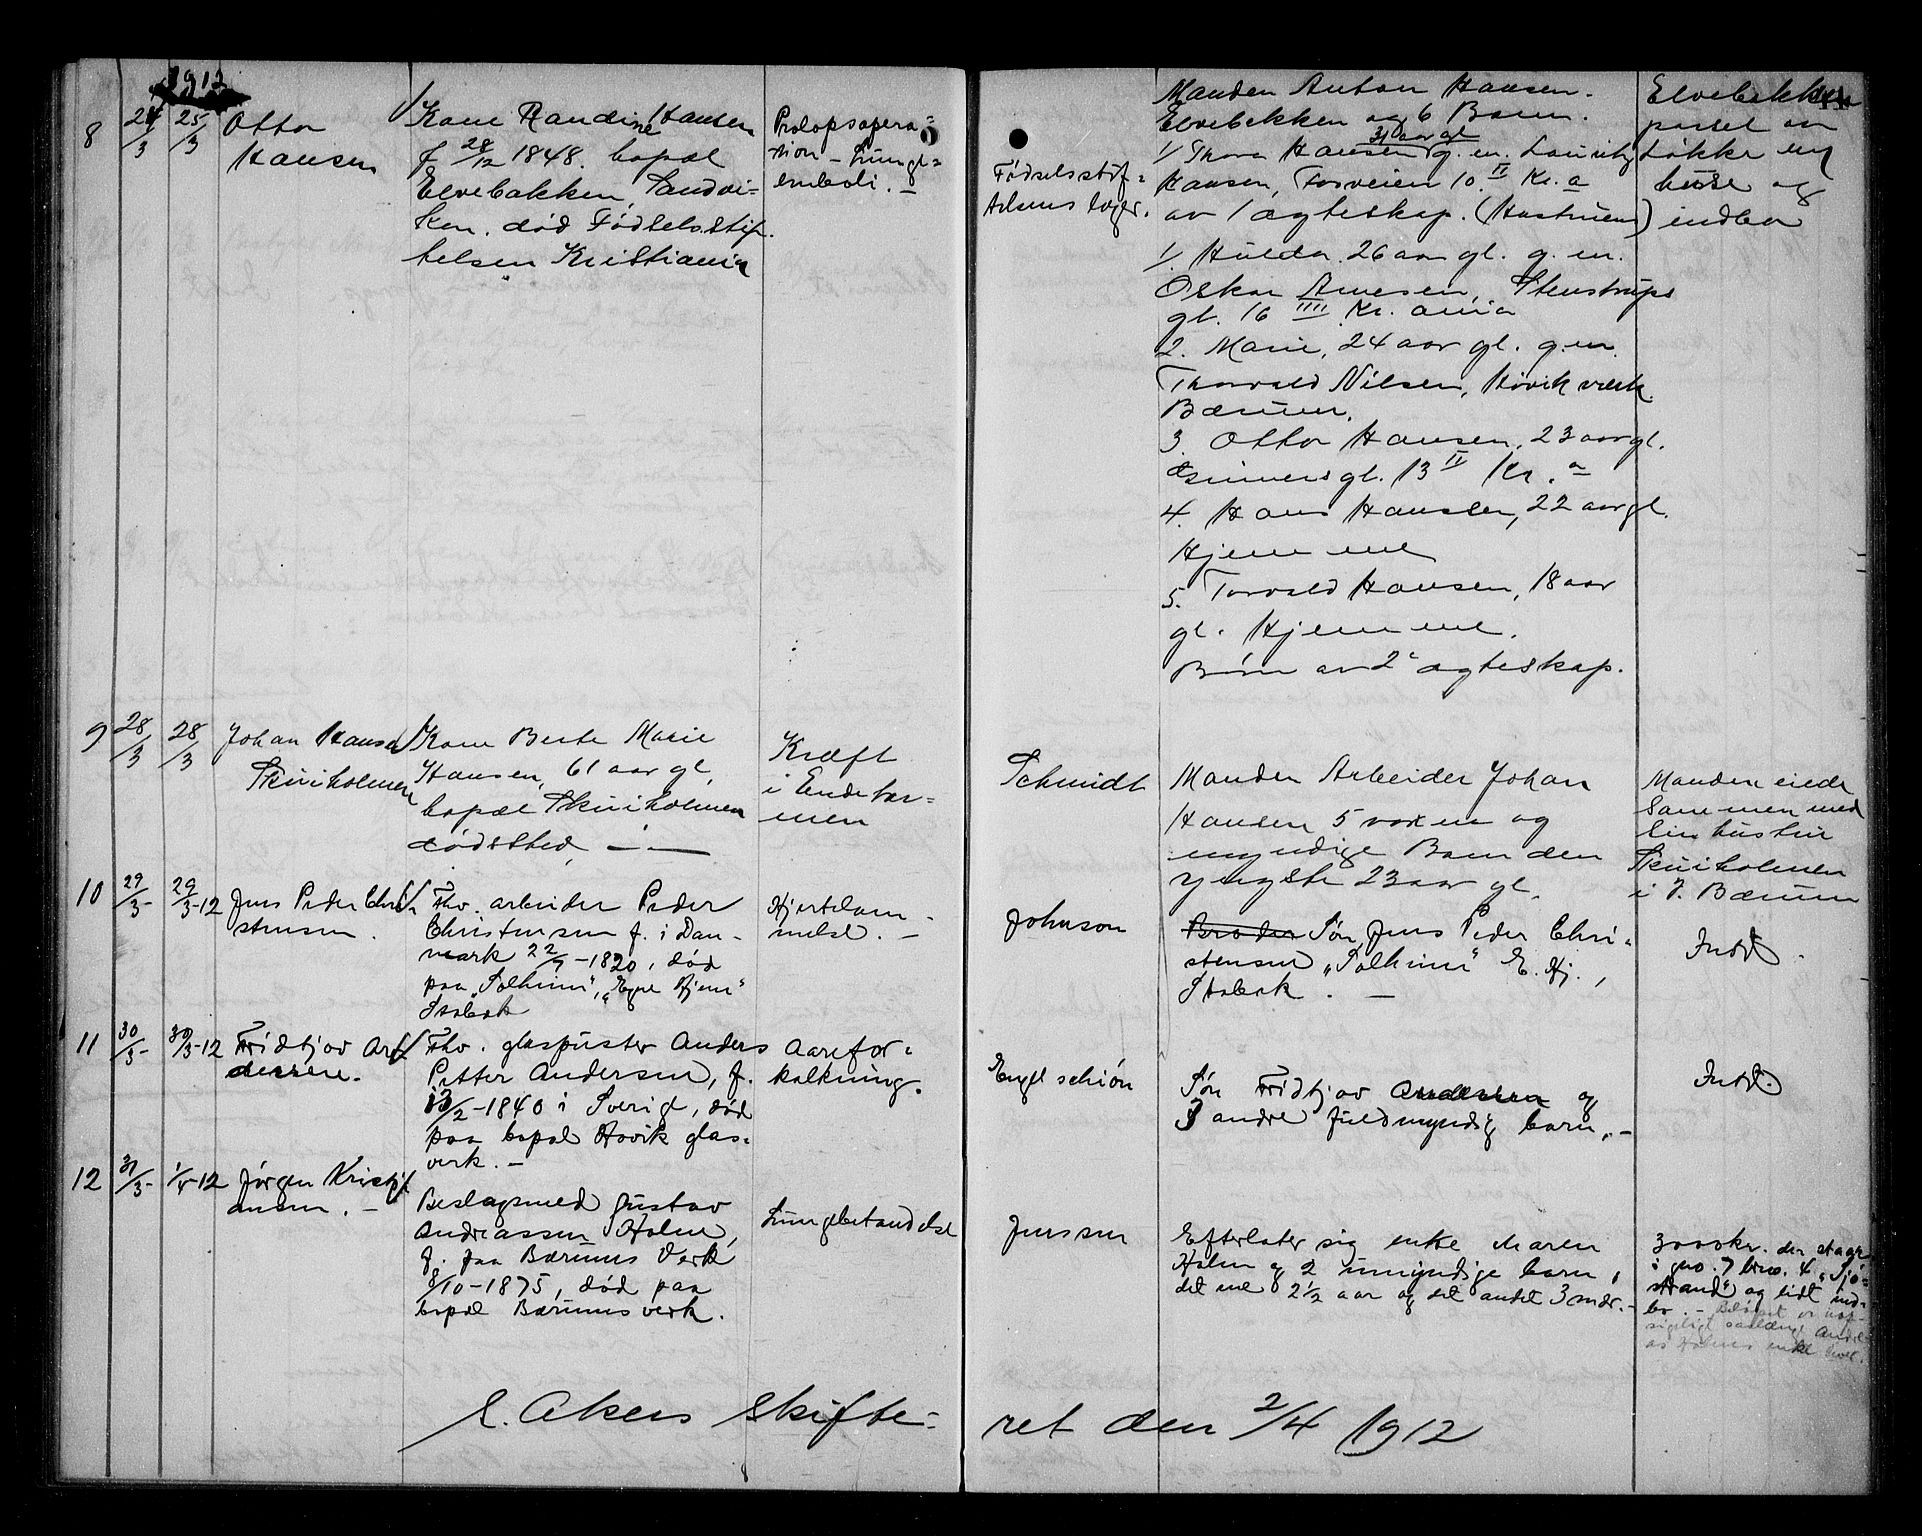 1912
8 24/3 25/3 Otto
Hansen
Kone Randine Hansen
f 28/12 1848. bopæl
Elvebakken, Sandvi-
ken. død Fødselsstif-
telsen Kristiania
Prolapsopera-
tion - Lunge-
emboli. -
Fødselsstif-
telsens læger.
Manden Anton Hansen.
Elvebakken og 6 Barn.
1/ Thora Hansen 31 aar gl g. m. Lauritz
Hansen, Fosveien 10 II Kr. a
av 1 ægteskap. (Hustruens)
1/. Hulda 26 aar gl. g. m.
Oskar Arnesen, Stenstrups
gt. 16 IIII Kr. ania
2. Marie, 24 aar gl. g.m.
Thorvald Nilsen, Høvik værk
Bærum.
3. Otto Hansen, 23 aar gl.
gt. 13 II Kr. a
4. Hans Hansen, 22 aar gl.
Hjemme
5. Torvald Hansen, 18 aar
gl. Hjemme.
Børn av 2 ægteskap.
Elvebakken
parsel av
Løkke med
huse og
indbo
9 28/3 28/3 Johan Hansen
Skuiholmen
Kone Berte Marie
Hansen, 61 aar gl,
bopæl Skuiholmen
dødssted — " —
Kræft
i Endetar-
men
Schmidt
Manden Arbeider Johan
Hansen 5 voxne og
myndige Barn den
yngste 23 aar gl.
Manden eiede
sammen med
sin hustru
Skuiholmen
i V. Bærum
10 29/3- 29/3-12 Jens Peder Chri-
stensen.
Fhv. arbeider Peder
Christensen f. i Dan-
mark 22/7-1820, død
paa "Solheim", "Egne Hjem"
Stabæk
Hjertelam-
melse. -
Johnson
Broder Søn, Jens Peder Chri-
stensen "Solheim" E. Hj.,
Stabæk. -
Intet.
11 30/3- 30/3-12 Fridtjov An-
dersen.
Fhv. glaspuster Anders
Petter Andersen, f.
13/2-1840 i Sverig, død
paa bopæl Høvik glas-
verk. -
Aarefor-
kalkning.
Engelschiøn
Søn Fridtjov Andersen og
3 andre fuldmyndig barn. -
Intet.
12 31/3- 1/4-12 Jørgen Kristi-
ansen. -
Beslagsmed Gustav
Andreassen Holm,
f. paa Bærums Verk
8/10-1875, død paa
bopæl Bærums verk.
Lungebetændelse
Jenssen
Efterlater sig enke Maren
Holm og 2 umyndige barn,
det ene 2 1/2 aar og det andet 3 mdr. -
3000 kr. der staar
i gno. 7 brno. 4, "Sjø-
strand" og lidt ind-
bo. - Beløpet er uop-
sigeligt saalænge Andre-
as Holms enke lever.
E. Akers Skifte-
ret den 2/4 1912